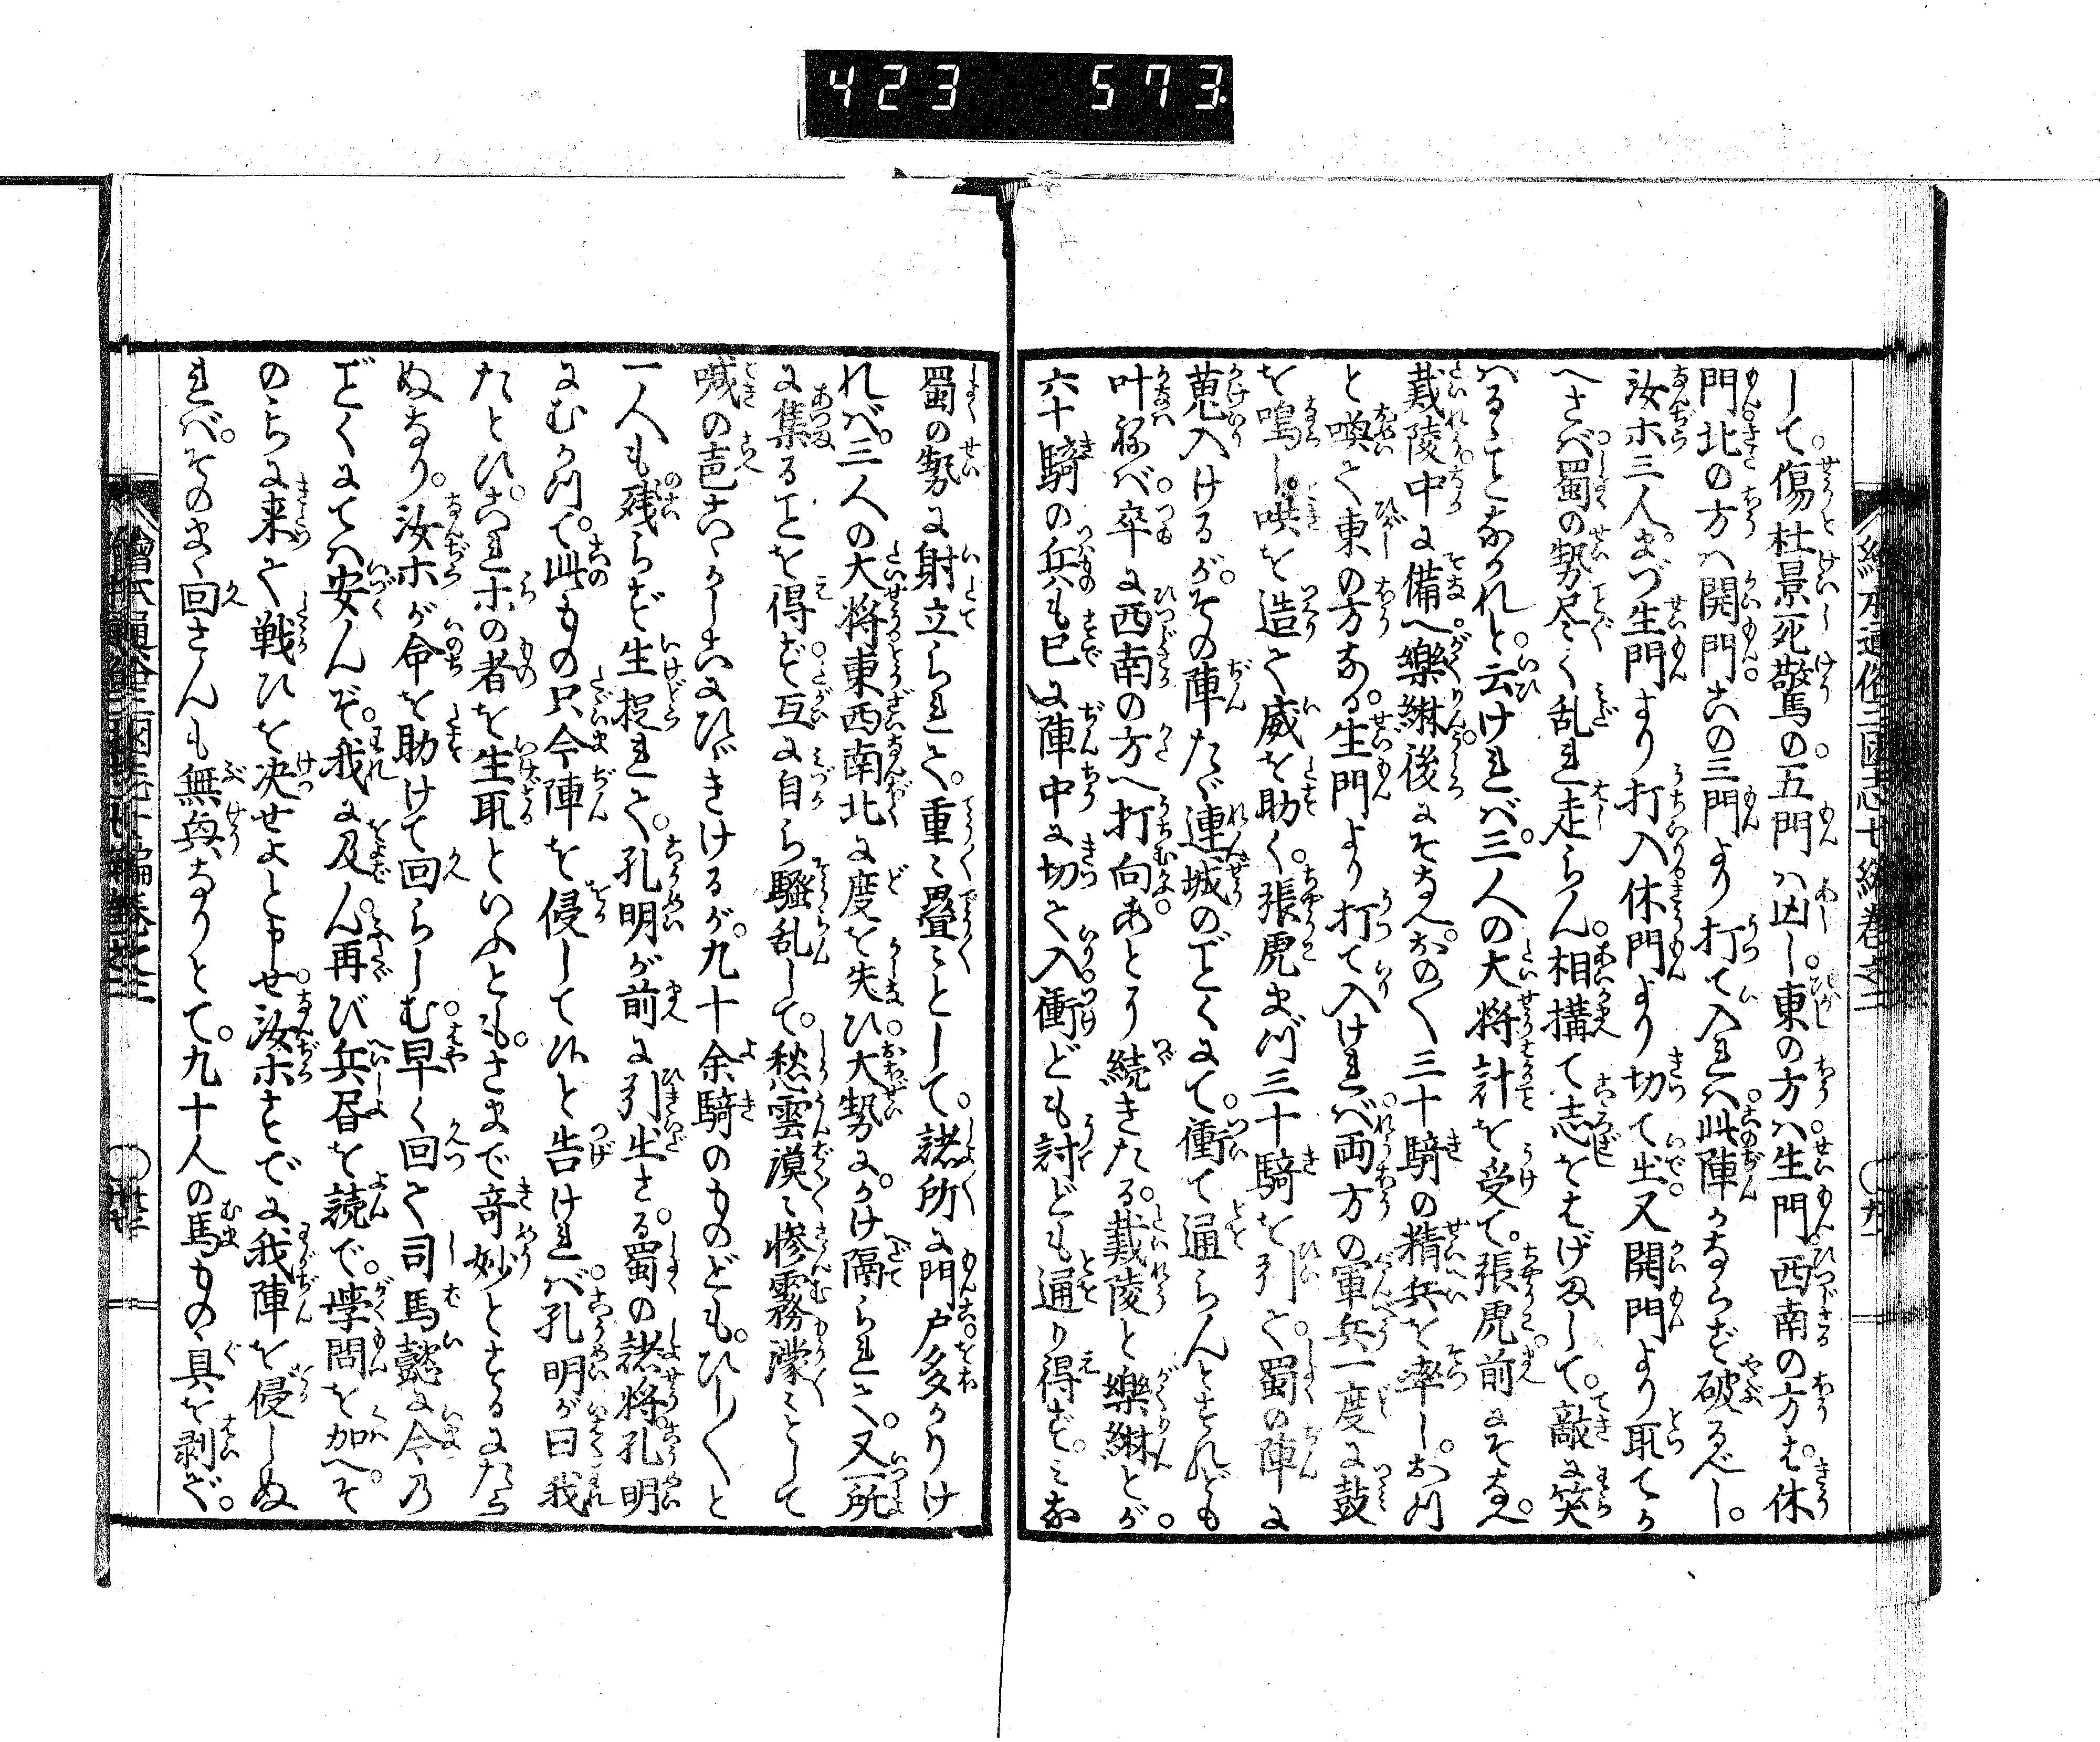 423 573.
して。傷杜景死驚の。五門ハ凶し。東の方ハ。生門。西南の方も。休
門。北の方ハ開門。この三門より打て入れハ。此陣かならず破るべし。
汝ホ三人。まづ生門より打入。休門より切て出。又開門より取てか
へさバ。蜀の勢尽〻く乱れ走らん。相構て志をはげまして。敵に笑
ハるゝことなかれと。云けれバ。三人の大将計を受て。張虎前にそなへ。
戴陵中に備へ。樂綝後にそなへ。おの〱三十騎の精兵を率し。おつ
と喚て東の方なる。生門より打て入けれバ。両方の軍兵一度に鼓
を鳴し。哄を造て威を助く。張虎まづ三十騎を引て。蜀の陣に
蒐入けるが。その陣たゞ連城のごとくにて。衝て通らんとすれども
叶ねバ。卒に西南の方へ打向ふ。あとり続きたる。戴陵と樂綝とが。
六十騎の兵も已に陣中に切て入。衝ども討ども通り得ず。ミな
蜀の勢に射立られて。重〻畳〻として。諸所に門戸多かりけ
れバ。三人の大将。東西南北に度を失ひ。大勢に。かけ隔られて。又一所
に集ることを得ず。互に自ら騒乱して。愁雲漠〻惨霧濛〻として
喊の声こゝかしこにひゞきけるが。九十余騎のものども。ひし〱と
一人も残らず生捉れて。孔明が前に引出さる。蜀の諸将。孔明
にむかつて。此もの只今陣を侵して候と告けれバ。孔明が曰我
たとひ。これホの者を生取といふとも。さまで奇妙とするにたら
ぬなり。汝ホが命を助けて回らしむ。早く回て司馬懿に今乃
ごとくにてハ安んぞ。我に及ん。再び兵書を読で。学問を加へ。そ
のちに来て戦ひを决せよと申せ。汝ホすでに我陣を侵しぬ
れバ。そのまゝ回さんも無興なりとて。九十人の馬ものゝ具を剥ぎ。